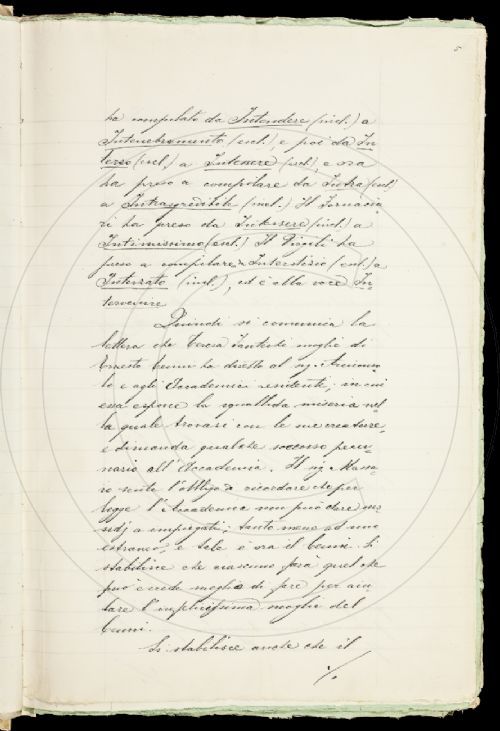 5
ha compilato da Intendere (incl.) a
Intenebramento (escl.), e poi da In-
terso (incl.) a Intessere (incl.), e ora
ha preso a compilare da Intra (incl.)
a Intrasgredibile (incl.) Il Fornacia-
ri ha preso da Intessere (incl.) a
Intimissimo (escl.) Il Rigoli ha
preso a compilare Interstizio (escl.) a
Interzato (incl.), ed è alla voce In-
tervenire
Quindi si comunica la
lettera che Teresa moglie di
Ernesto ha diretto al sig.
lo e agli Accademici residenti, in cui
essa espone la squallida miseria nel-
la quale trovasi con le sue creature,
e dimanda qualche soccorso pecu-
niario all'Accademia. Il sig.
sente l'obbligo di ricordare che per
legge l'Accademia non può dare sus-
sidj a impiegati; tanto meno ad uno
estraneo, e tale è ora il Si
stabilisce che ciascuno farà quel che
può e crede meglio di fare per aiu-
tare l'infelicissima moglie del
Si stabilisce anche che il
./.